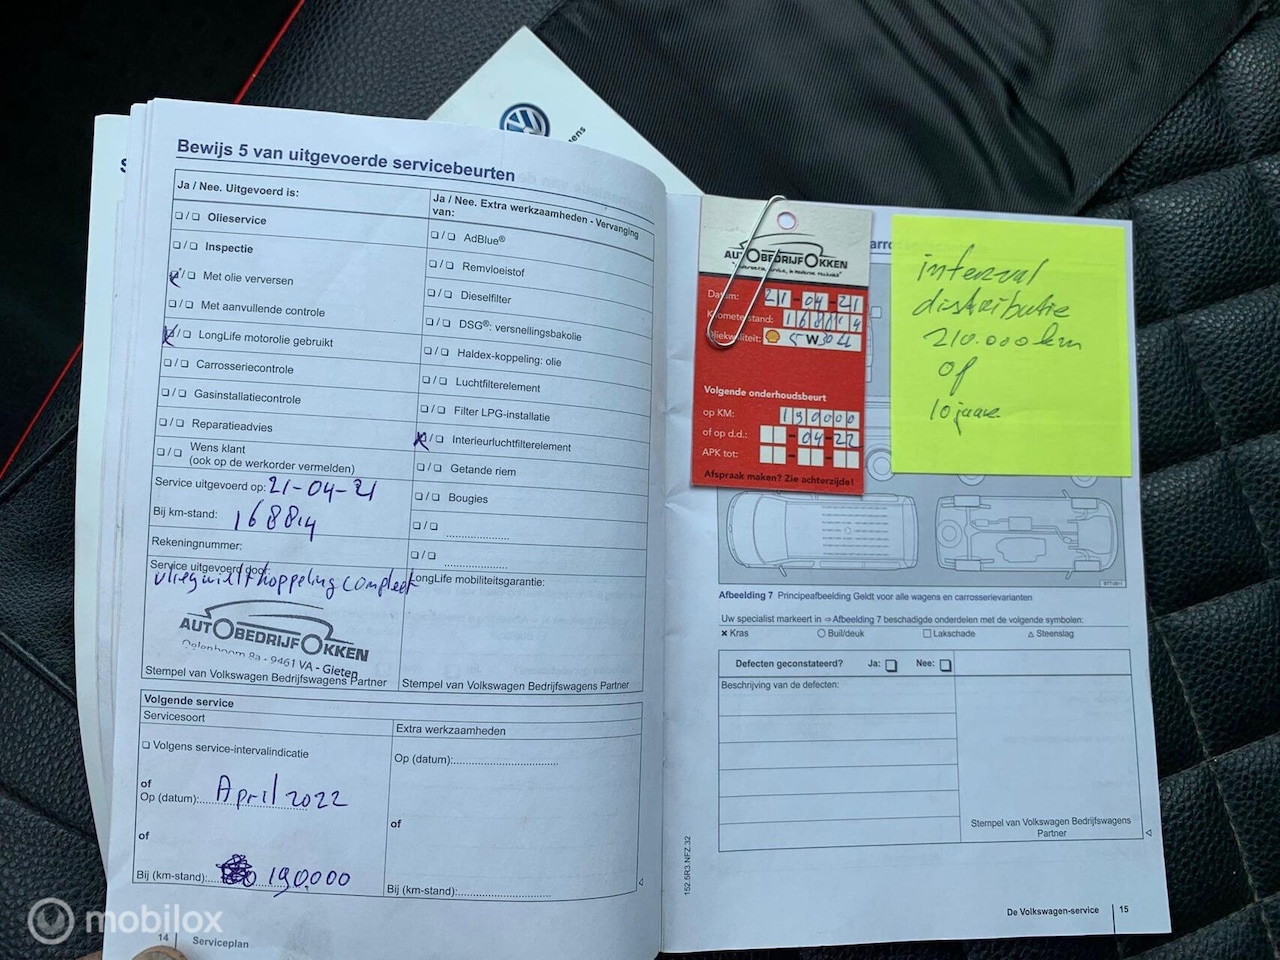 Bewijs 5 van uitgevoerde servicebeurten
Ja / Nee. Uitgevoerd is:
❑ / ❑ Olieservice
❑ / ❑ Inspectie
❑ / ❑ Met olie verversen
❑ / ❑ Met aanvullende controle
❑ / ❑ LongLife motorolie gebruikt
❑ / ❑ Carrosseriecontrole
❑ / ❑ Gasinstallatiecontrole
❑ / ❑ Reparatieadvies
❑ / ❑ Wens klant
(ook op de werkorder vermelden)
Service uitgevoerd op: 21-04-21
Bij km-stand: 168814
Rekeningnummer:
Service uitgevoerd door:
vliegwiel + koppeling compleet
AUTOBEDRIJF OKKEN
Oelenboom 8a - 9461 VA - Gieten
Stempel van Volkswagen Bedrijfswagens Partner
Ja / Nee. Extra werkzaamheden - Vervanging
van:
❑ / ❑ AdBlue®
❑ / ❑ Remvloeistof
❑ / ❑ Dieselfilter
❑ / ❑ DSG®: versnellingsbakolie
❑ / ❑ Haldex-koppeling: olie
❑ / ❑ Luchtfilterelement
❑ / ❑ Filter LPG-installatie
❑ / ❑ Interieurluchtfilterelement
❑ / ❑ Getande riem
❑ / ❑ Bougies
❑ / ❑
❑ / ❑
LongLife mobiliteitsgarantie:
Stempel van Volkswagen Bedrijfswagens Partner
Volgende service
Servicesoort
❑ Volgens service-intervalindicatie
of
Op (datum): April 2022
of
Bij (km-stand): 190.000
Extra werkzaamheden
Op (datum):
of
Bij (km-stand):
14 Serviceplan
AUTOBEDRIJF OKKEN
Datum: 21-04-21
Kilometerstand: 168814
Oliekwaliteit: 5 W 30 LL
Volgende onderhoudsbeurt
op KM: 190000
of op d.d.: - 04 - 22
APK tot:
Afspraak maken? Zie achterzijde!
interval
distributie
210.000 km
of
10 jaar
Afbeelding 7 Principeafbeelding Geldt voor alle wagens en carrosserievarianten
Uw specialist markeert in ⇒ Afbeelding 7 beschadigde onderdelen met de volgende symbolen:
✗ Kras ○ Buil/deuk □ Lakschade △ Steenslag
Defecten geconstateerd? Ja: ❑ Nee: ❑
Beschrijving van de defecten:
Stempel van Volkswagen Bedrijfswagens
Partner
152.5R3.NFZ.32
De Volkswagen-service 15
mobilox